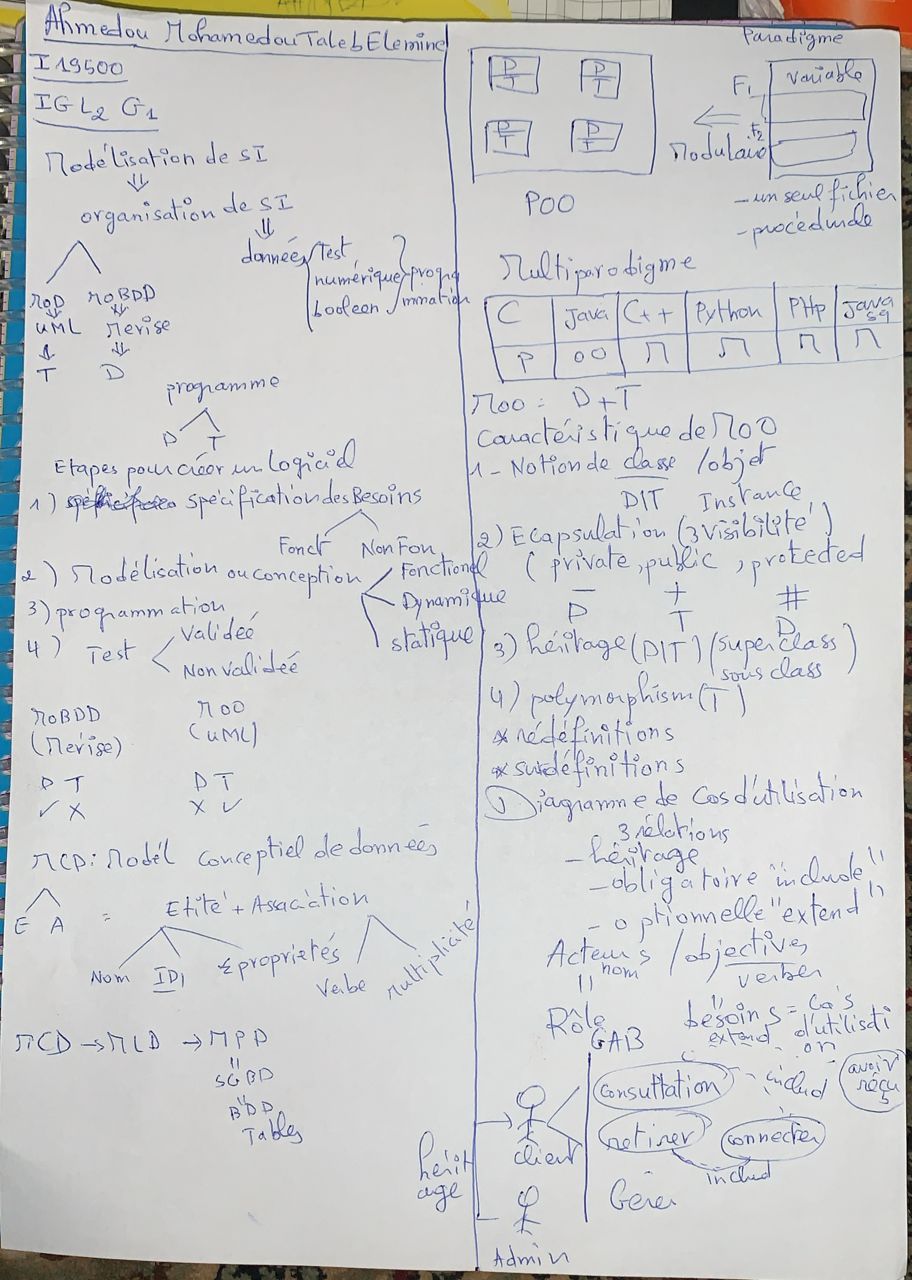 Ahmedou MohamedouTalebElemine
I19500
IGL2 G1
Modélisation de SI
⇓
organisation de SI
⇓
données
Test
numérique
boolean
progra
mmation
MOD
MOBDD
UML
Merise
T
D
programme
D T
Etapes pour créer un logiciel
1) spécification des Besoins
Fonct Non Fon
2) Modélisation ou conception
Fonctionel
Dynamique
statique
3) programmation
4) Test
Validéé
Non validéé
MOBDD
(Merise)
D T
✓ X
MOO
(UML)
D T
X ✓
MCD: Modél conceptiel de données
E A = Etité + Assaciation
Nom ID1 propriétés
Verbe multiplicité
MCD → MLD → MPD
"
SGBD
"
BDD
Tables
Paradigme
D
T
D
T
D
T
D
T
POO
F1
F2
variable
←
- un seul fichier
Multiparadigme
C | Java | C++ | Python | PHP | Java
P | OO | M | M | M | M
MOO = D+T
Caractéristique de MOO
1- Notion de classe /objet
DIT Instance
2) Ecapsulation (3 visibilité)
( private, public, protected
- + #
D T D
3) héritage (DIT) (super class)
sous class
4) polymorphism (T)
* rédéfinitions
* surdéfinitions
1) Diagramme de Cas d'utilisation
3 rélations
- héritage
- obligatoire "include"
- optionnelle "extend"
Acteurs / objectives
" nom verber
Rôle
"
besoins = Cas
d'utilisti
on
GAB
extend
consultation
includ
avoir
réçu
client
retirer
connecter
includ
hérit
age
Gérer
Admin